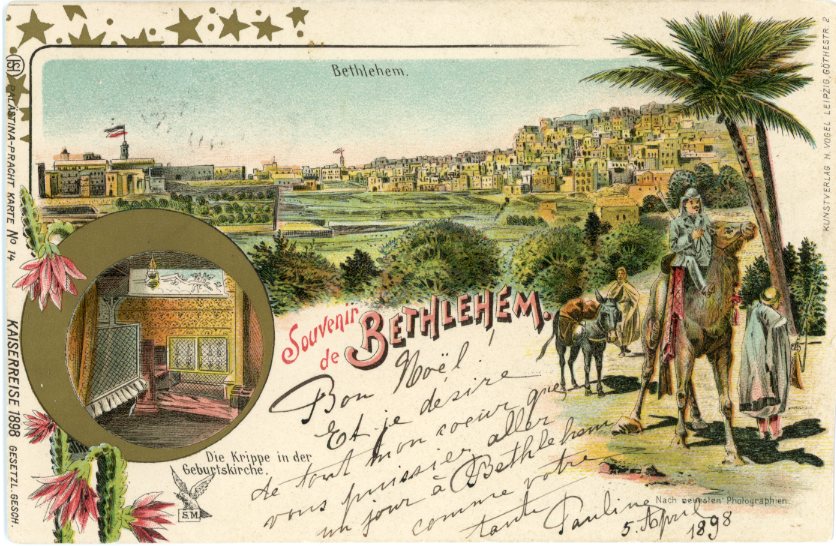 Bethlehem.
PALÄSTINA-PRACHT KARTE No 14
KAISERREISE 1898 GESETZL. GESCH.
KUNSTVERLAG H. VOGEL LEIPZIG, GÖTHESTR. 2
Souvenir
de BETHLEHEM.
Die Krippe in der
Geburtskirche.
S.M.
Bon Noël!
Et je désire
de tout mon coeur que
vous puissier aller
un jour à Bethlehem
comme votre
tante Pauline
5. April
1898
Nach neuesten Photographien.